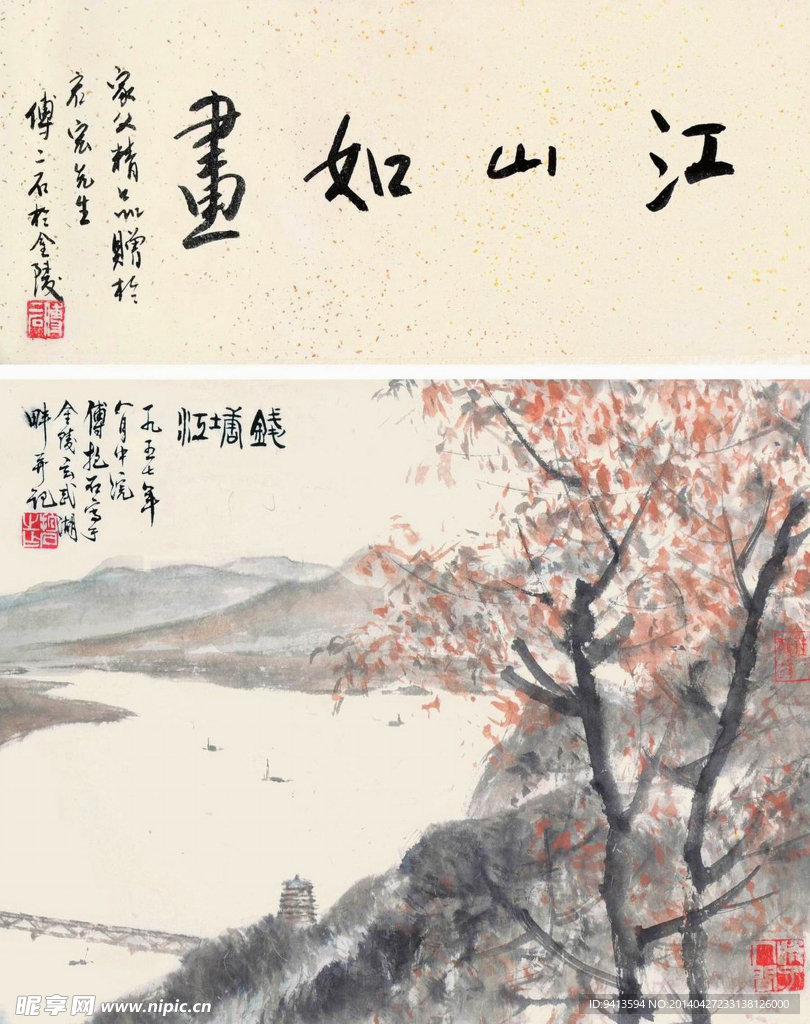 江山如畫
家父精品贈於
君宏先生
傅二石於金陵
錢塘江
一九五七年
八月中浣
傅抱石寫于
金陵玄武湖
畔并記
昵享网 www.nipic.cn
ID:9413594 NO:20140427233138126000